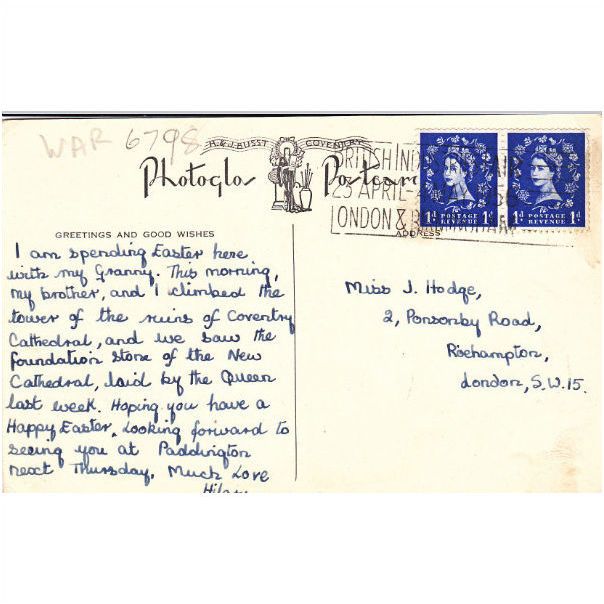 WAR 6798
H. & J. BUSST COVENTRY
Photoglos Postcard
BRITISH INDUSTRIES FAIR
23 APRIL-4
LONDON & BIRMINGHAM
1d POSTAGE 1d
REVENUE
1d POSTAGE 1d
REVENUE
GREETINGS AND GOOD WISHES
ADDRESS
I am spending Easter here
with my Granny. This morning,
my brother, and I climbed the
tower of the ruins of Coventry
Cathedral, and we saw the
foundation stone of the New
Cathedral, laid by the Queen
last week. Hoping you have a
Happy Easter. Looking forward to
seeing you at Paddington
next Thursday. Much Love
Hilary
Miss J. Hodge,
2, Ponsonby Road,
Roehampton,
London, S.W.15.